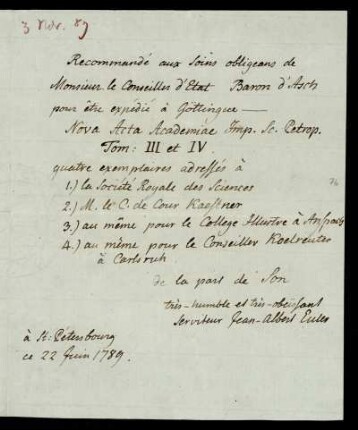 3 Nov. 89
Recommandé aux Soins obligeans de
Monsieur le Conseiller d'Etat Baron d'Asch
pour être expedié à Göttingue —
Nova Acta Academiae Imp. Sc. Petrop.
Tom: III et IV.
quatre exemplaires adressés à
1.) la Société Royale des Sciences
2.) M. le C. de Cour Kaestner
3.) au même pour le College Illustre à Anspach
4.) au même pour le Conseiller Koelreuter
à Carlsruh.
de la part de Son
très-humble et très-obeissant
Serviteur Jean-Albert Euler
à St. Petersbourg
ce 22 Juin 1789.